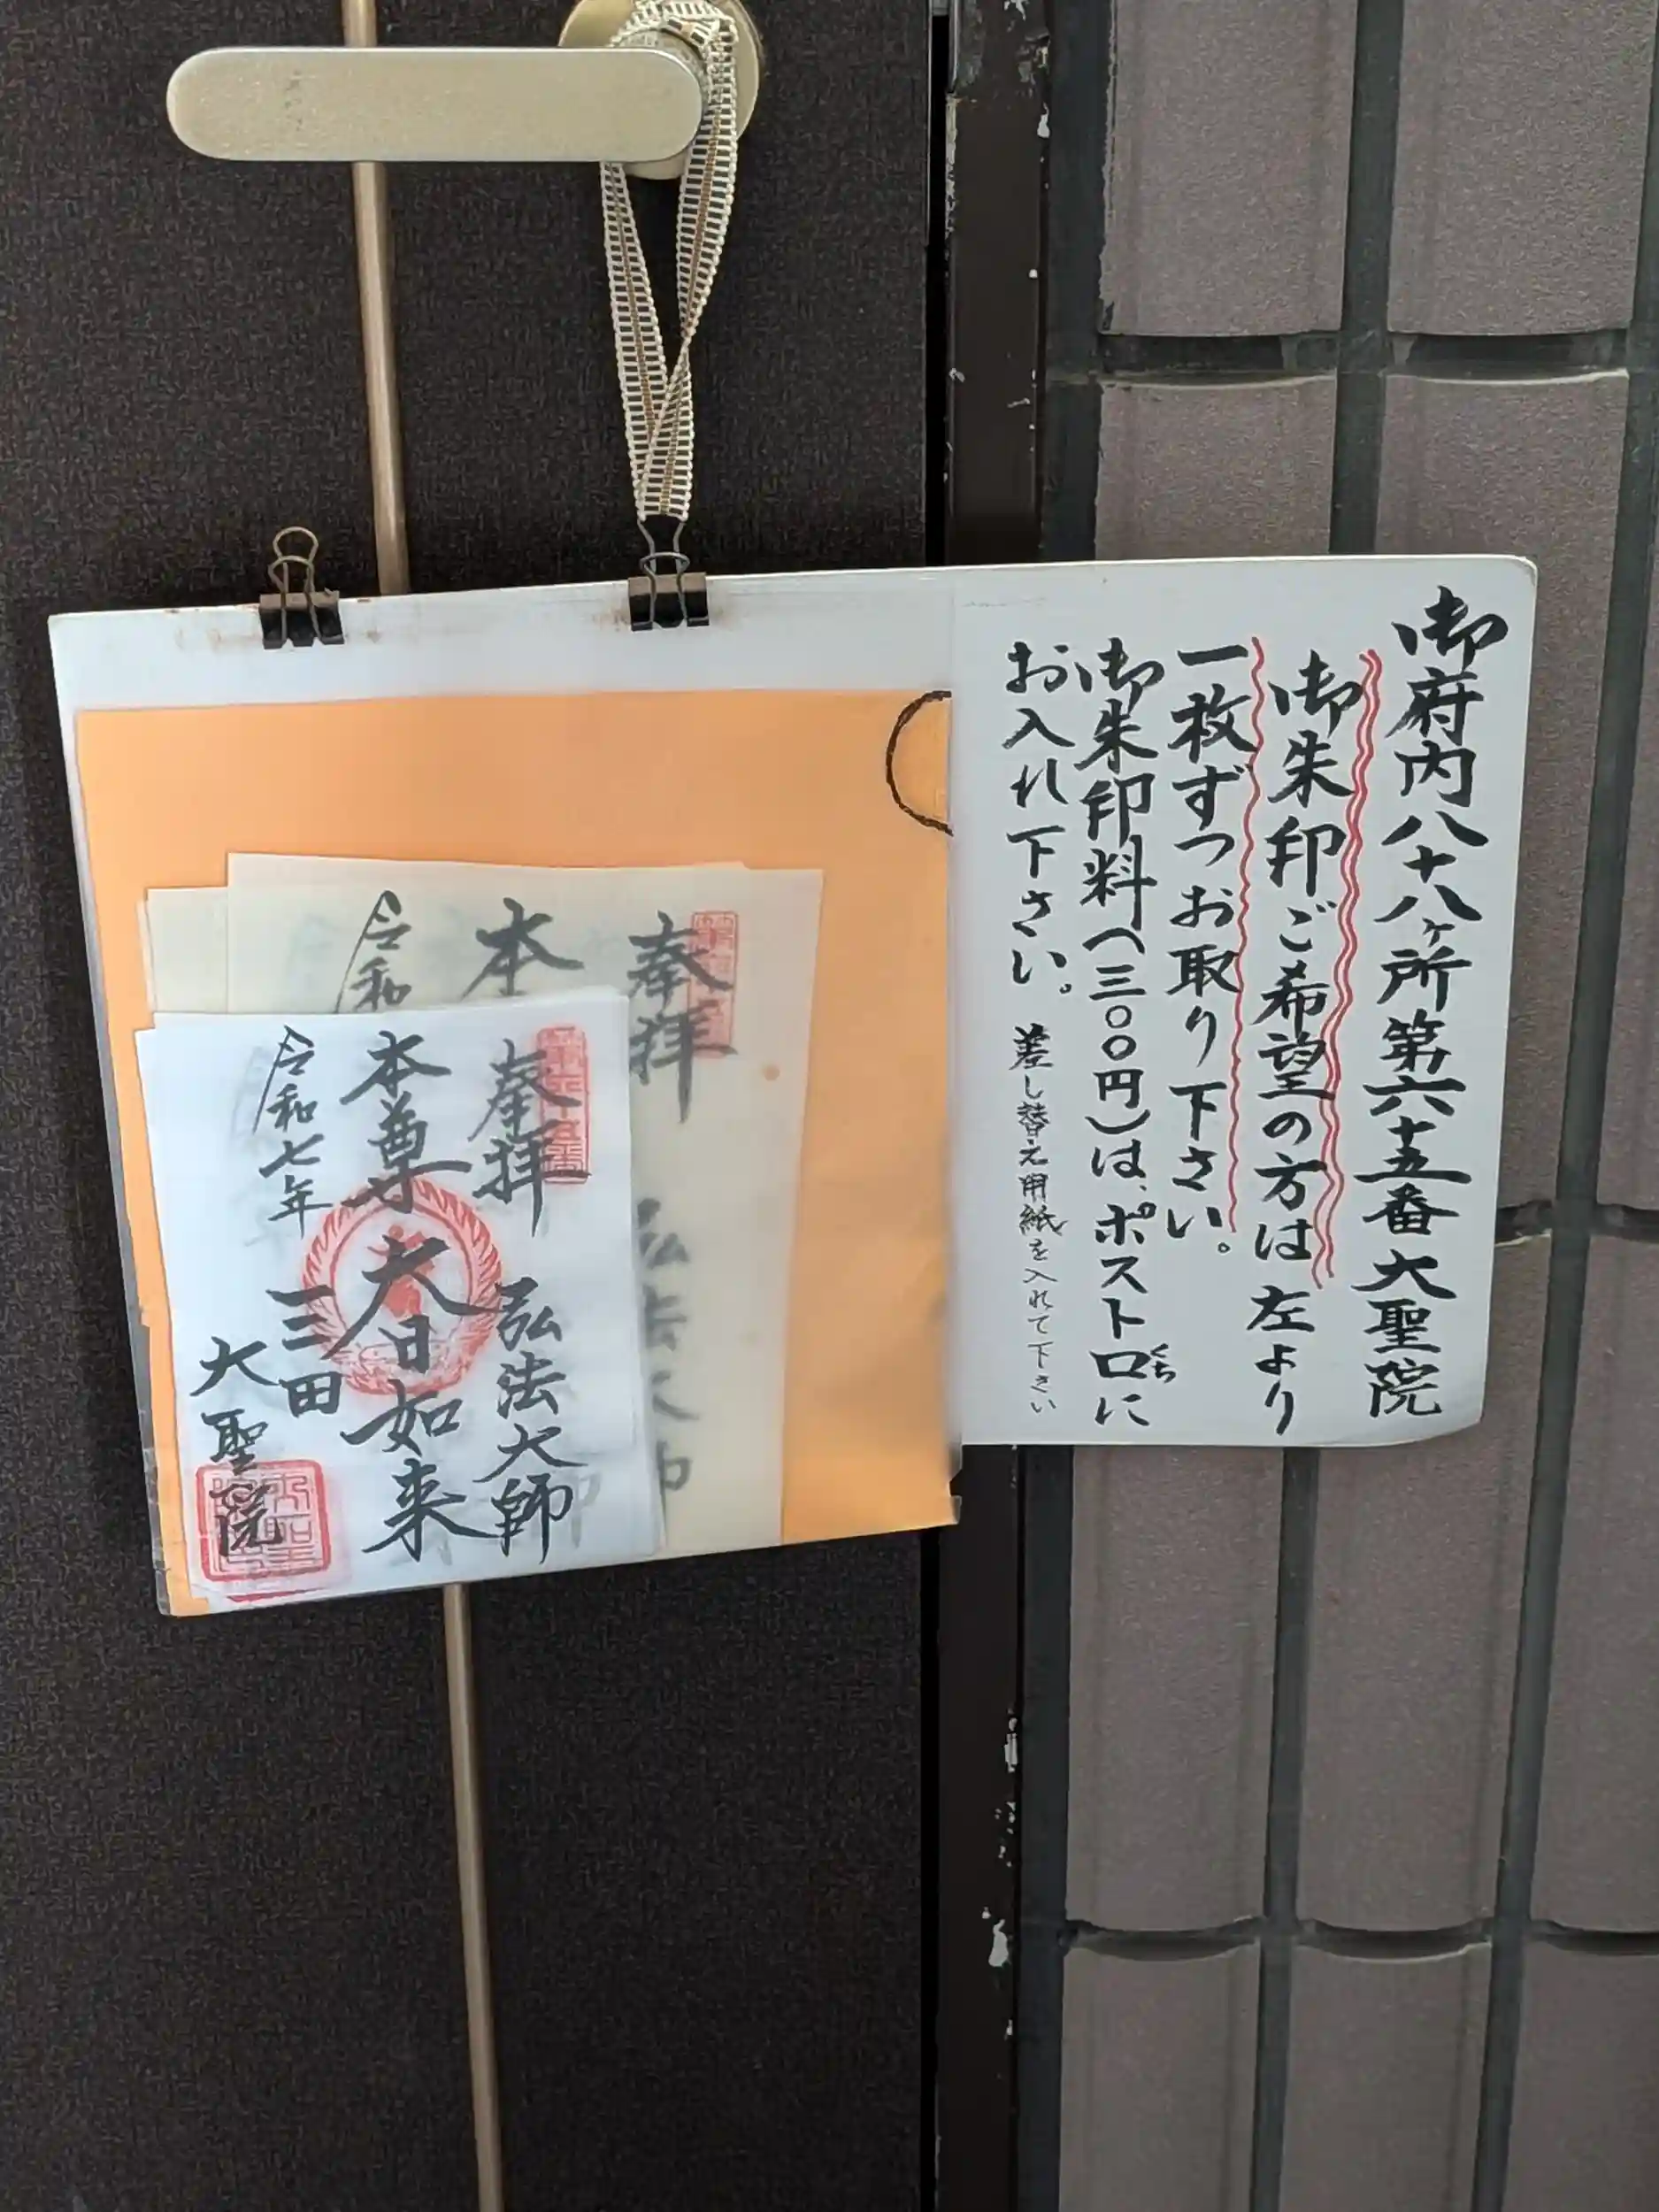 御府内八十八ヶ所第六十五番大聖院
御朱印ご希望の方は左より
一枚ずつお取り下さい。
御朱印料(三〇〇円)は、ポスト口に
くち
お入れ下さい。差し替え用紙を入れて下さい
奉拝
本
令和
弘法大師
奉拝 弘法大師
本尊大日如来
令和七年 三田
大聖院